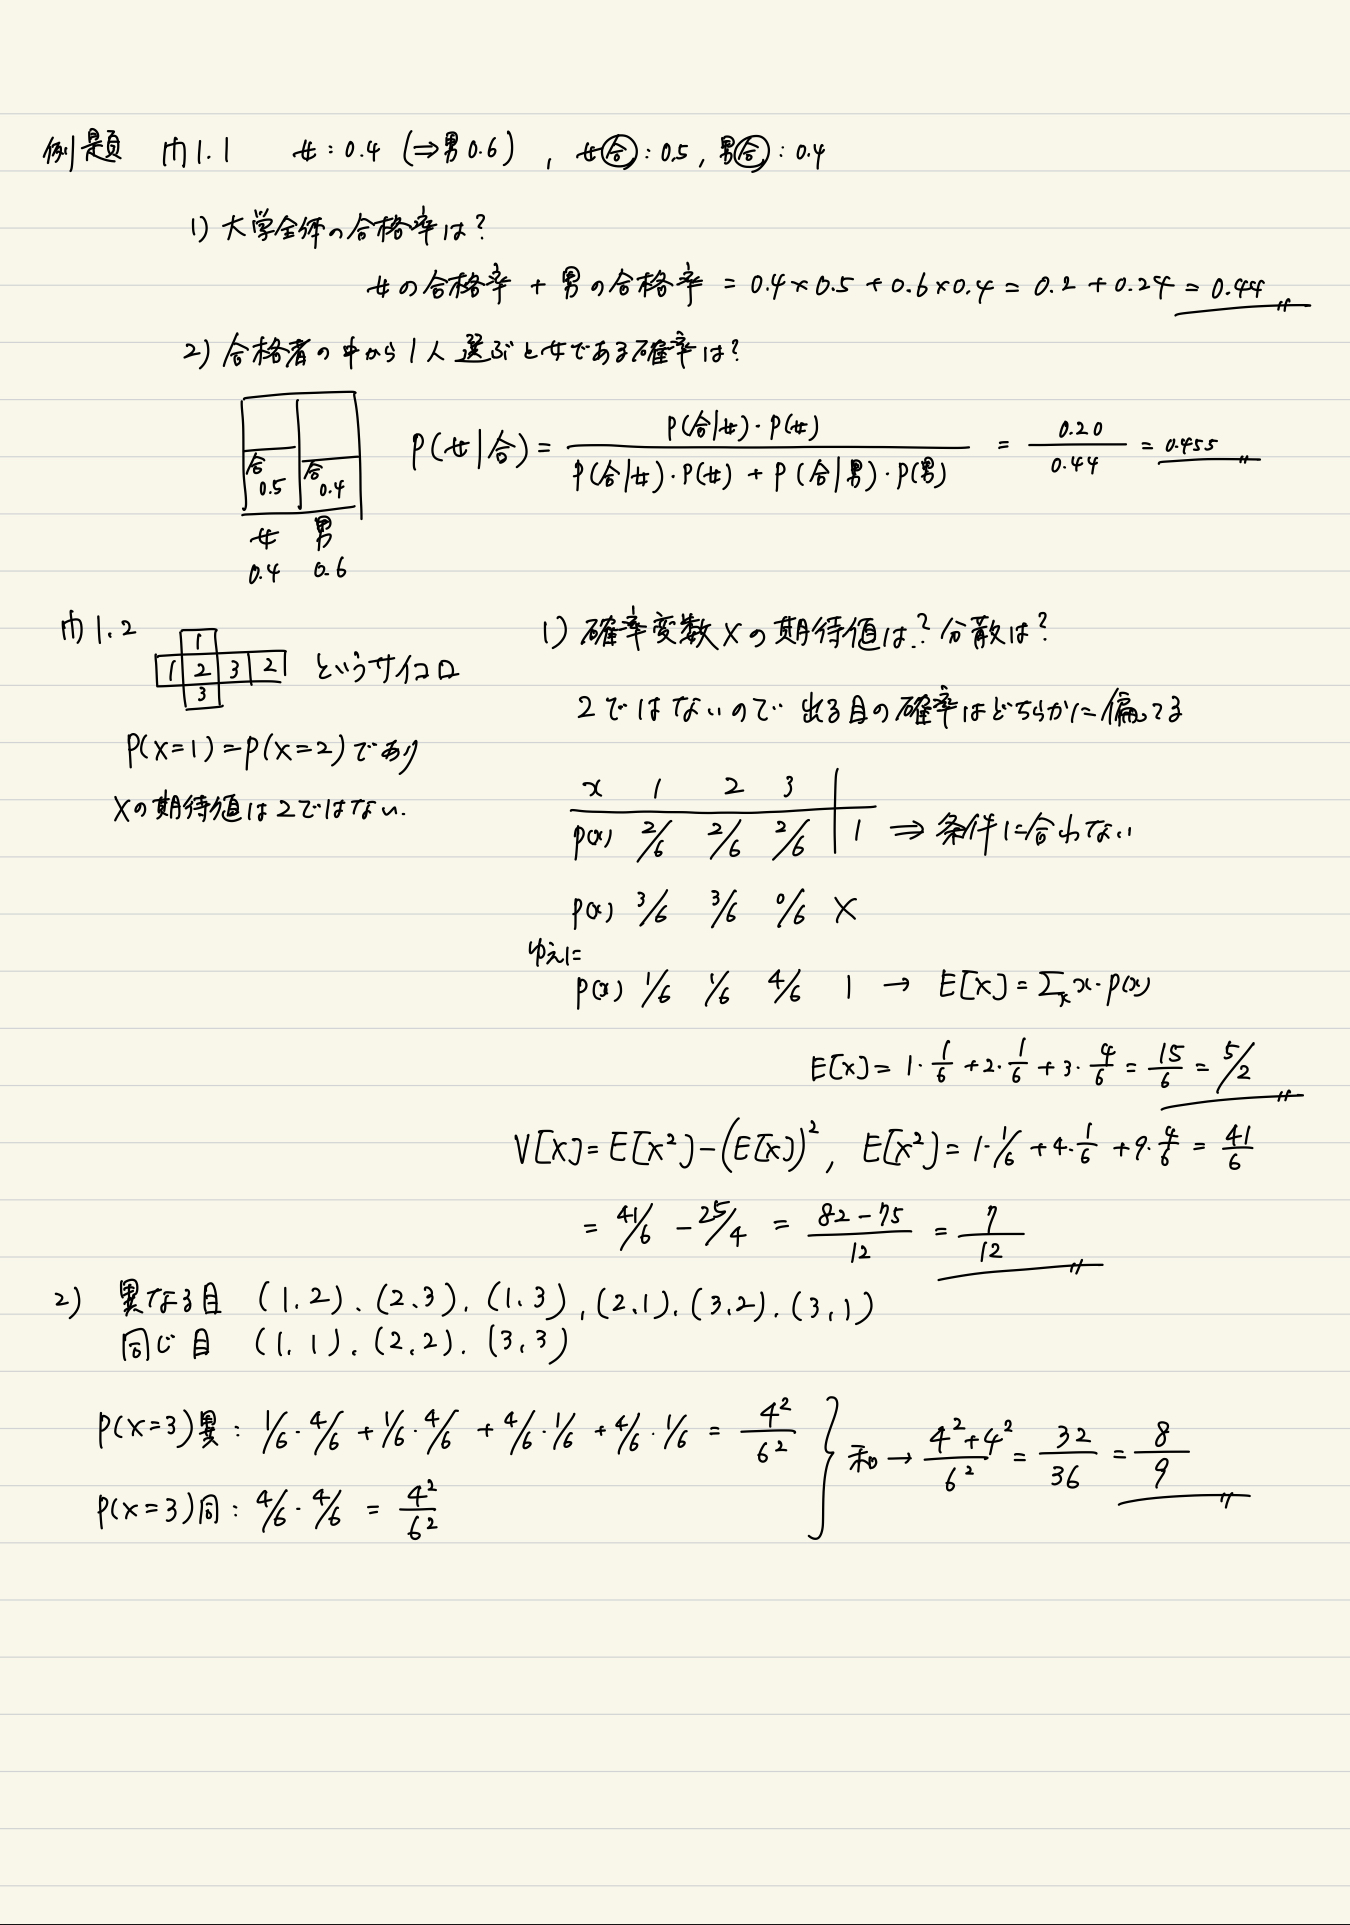 例題 問1.1 女:0.4 (⇒男0.6), 女合:0.5, 男合:0.4
1) 大学全体の合格率は?
女の合格率 + 男の合格率 = 0.4×0.5 + 0.6×0.4 = 0.2 + 0.24 = 0.44
2) 合格者の中から1人選ぶと女である確率は?
合 0.5 合 0.4
女 男
0.4 0.6
P(女|合) = P(合|女)・P(女) / P(合|女)・P(女) + P(合|男)・P(男) = 0.20/0.44 = 0.455
問1.2
1
1 2 3 2 というサイコロ
3
P(X=1)=P(X=2)であり
Xの期待値は2ではない.
1) 確率変数Xの期待値は?分散は?
2ではないので 出る目の確率はどちらかに偏ってる
x 1 2 3
P(x) 2/6 2/6 2/6 1 ⇒ 条件に合わない
P(x) 3/6 3/6 0/6 ×
ゆえに
P(x) 1/6 1/6 4/6 1 → E[X] = Σx x・P(x)
E[X] = 1・1/6 + 2・1/6 + 3・4/6 = 15/6 = 5/2
V[X] = E[X²] − (E[X])², E[X²] = 1・1/6 + 4・1/6 + 9・4/6 = 41/6
= 41/6 − 25/4 = 82−75/12 = 7/12
2) 異なる目 (1.2).(2.3).(1.3),(2.1).(3.2).(3.1)
同じ目 (1.1).(2.2).(3.3)
P(X=3)異: 1/6・4/6 + 1/6・4/6 + 4/6・1/6 + 4/6・1/6 = 4²/6²
P(X=3)同: 4/6・4/6 = 4²/6²
和 → 4²+4²/6² = 32/36 = 8/9